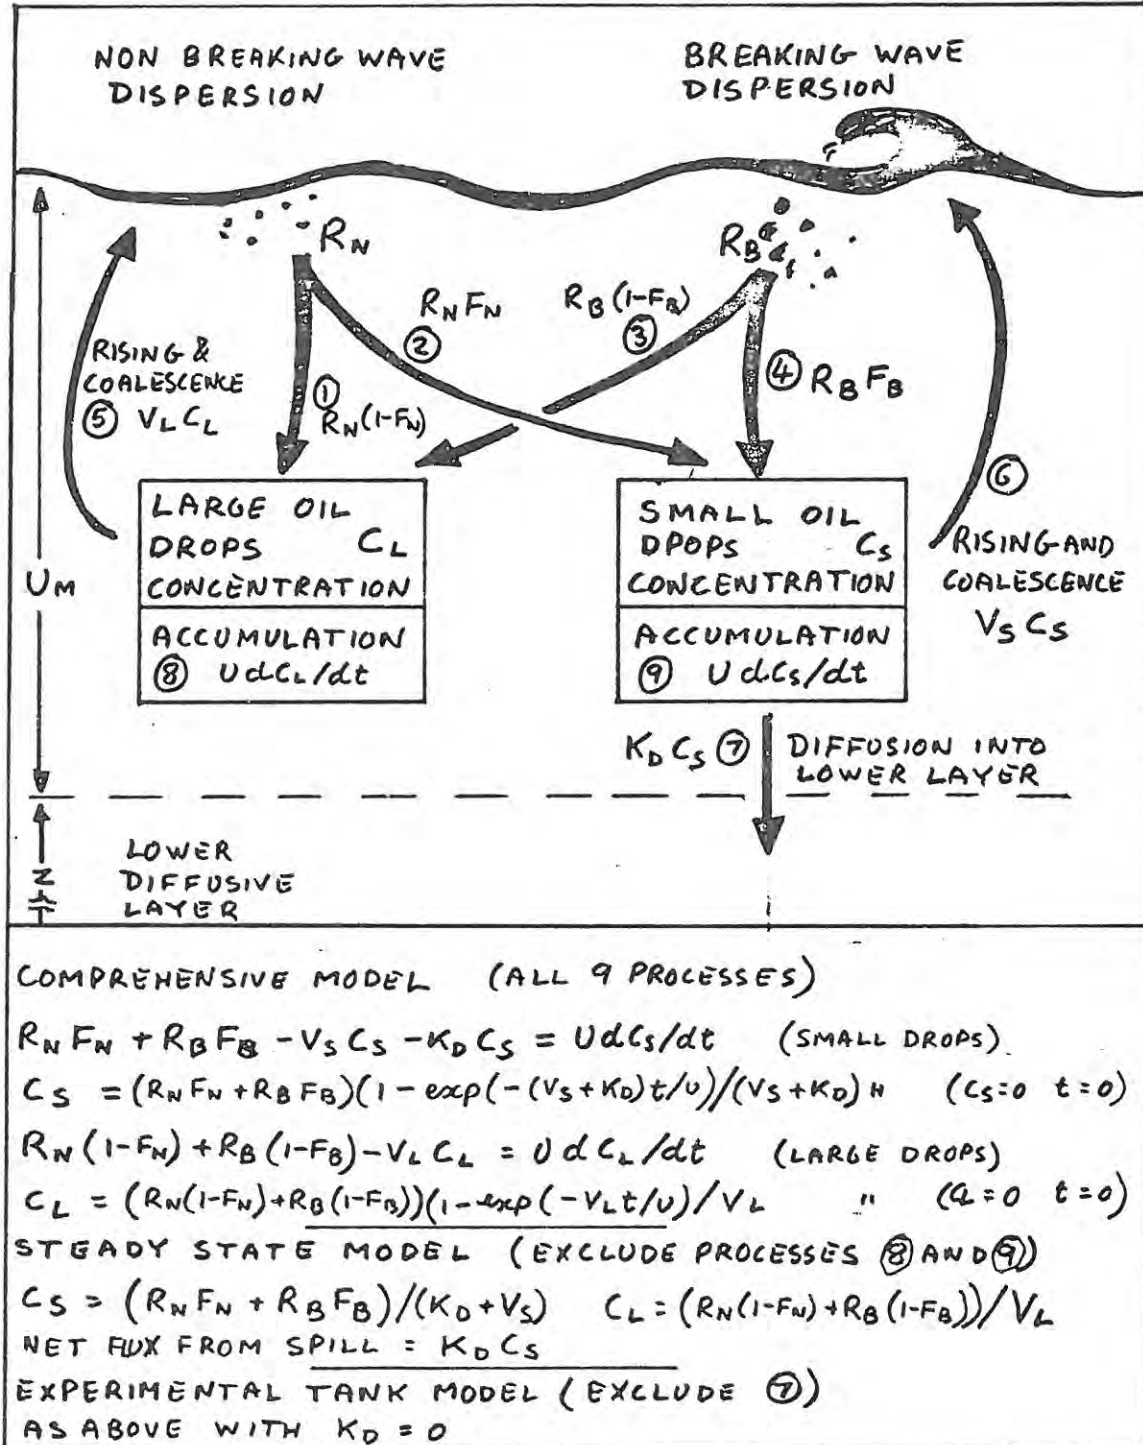 NON BREAKING WAVE
DISPERSION
BREAKING WAVE
DISPERSION
R_N
R_B
R_N F_N
②
R_B (1-F_B)
③
RISING &
COALESCENCE
⑤ V_L C_L
①
R_N (1-F_N)
④ R_B F_B
⑥
RISING AND
COALESCENCE
V_S C_S
U_M
LARGE OIL
DROPS C_L
CONCENTRATION
ACCUMULATION
⑧ U dC_L/dt
SMALL OIL
DPOPS C_S
CONCENTRATION
ACCUMULATION
⑨ U dC_S/dt
K_D C_S ⑦
DIFFUSION INTO
LOWER LAYER
Z
LOWER
DIFFUSIVE
LAYER
COMPREHENSIVE MODEL (ALL 9 PROCESSES)
R_N F_N + R_B F_B - V_S C_S - K_D C_S = U dC_S/dt (SMALL DROPS)
C_S = (R_N F_N + R_B F_B)(1 - exp(-(V_S + K_D) t/U)/(V_S + K_D) " (C_S=0 t=0)
R_N (1-F_N) + R_B (1-F_B) - V_L C_L = U d C_L/dt (LARGE DROPS)
C_L = (R_N(1-F_N) + R_B(1-F_B))(1-exp(-V_L t/U)/V_L " (C_L=0 t=0)
STEADY STATE MODEL (EXCLUDE PROCESSES ⑧ AND ⑨)
C_S = (R_N F_N + R_B F_B)/(K_D + V_S) C_L = (R_N(1-F_N) + R_B (1-F_B))/V_L
NET FLUX FROM SPILL = K_D C_S
EXPERIMENTAL TANK MODEL (EXCLUDE ⑦)
AS ABOVE WITH K_D = 0